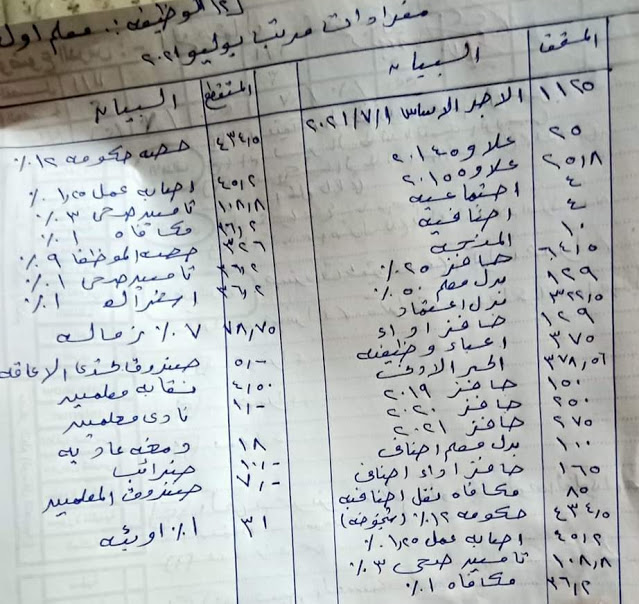 الوظيفه: معلم اول
مفردات مرتب يوليو ٢٠٢١
المستحق
البيان
١١٢٥ الاجر الاساسى ٢٠٢١/٧/١
٢٥ علاوه ٢٠١٤
٢٥,٨ علاوه ٢٠١٥
٤ اجتماعية
٤ اضافية
١٠ المنحه
٦٤,٥ حافز ٢٥٪
٨٢٩ بدل معلم ٥٠٪
٣٢٢,٥ بدل اعتماد
١٢٩ حافز اداء
٣٧٥ اعباء وظيفيه
٣٧٨,٥٦ الحد الادنى
١٥٠ حافز ٢٠١٩
٢٥٠ حافز ٢٠٢٠
٢٧٥ حافز ٢٠٢١
١٠٠ بدل معلم اضافى
١٦٥ حافز اداء اضافى
٨٥ مكافاه نقل اضافيه
٤٣٤,٥ حكومه ١٢٪
٤٥,٢ اصابه عمل ١,٢٥٪
١٠٨,٨ تامين صحى ٣٪
٣٦,٢ مكافاه ١٪
المستقطع
البيان
٤٣٤,٥ حصه حكومه ١٢٪
٤٥,٢ اصابه عمل ١,٢٥٪
١٠٨,٨ تامين صحى ٣٪
٣٦,٢ مكافاه ١٪
٣٢٦ حصه الموظف ٩٪
٣٦,٢ تامين صحى ١٪
٣٦,٢ ١٪
٧٨,٧٥ ٧٪ زماله
٥,- صندوق ذوى الاعاقه
٤,٥٠ نقابه معلمين
١,- نادى معلمين
١٨ دمغه عاديه
١٠,- ضرائب
٧,- صندوق المعلمين
٣١ ١٪ اوبئه